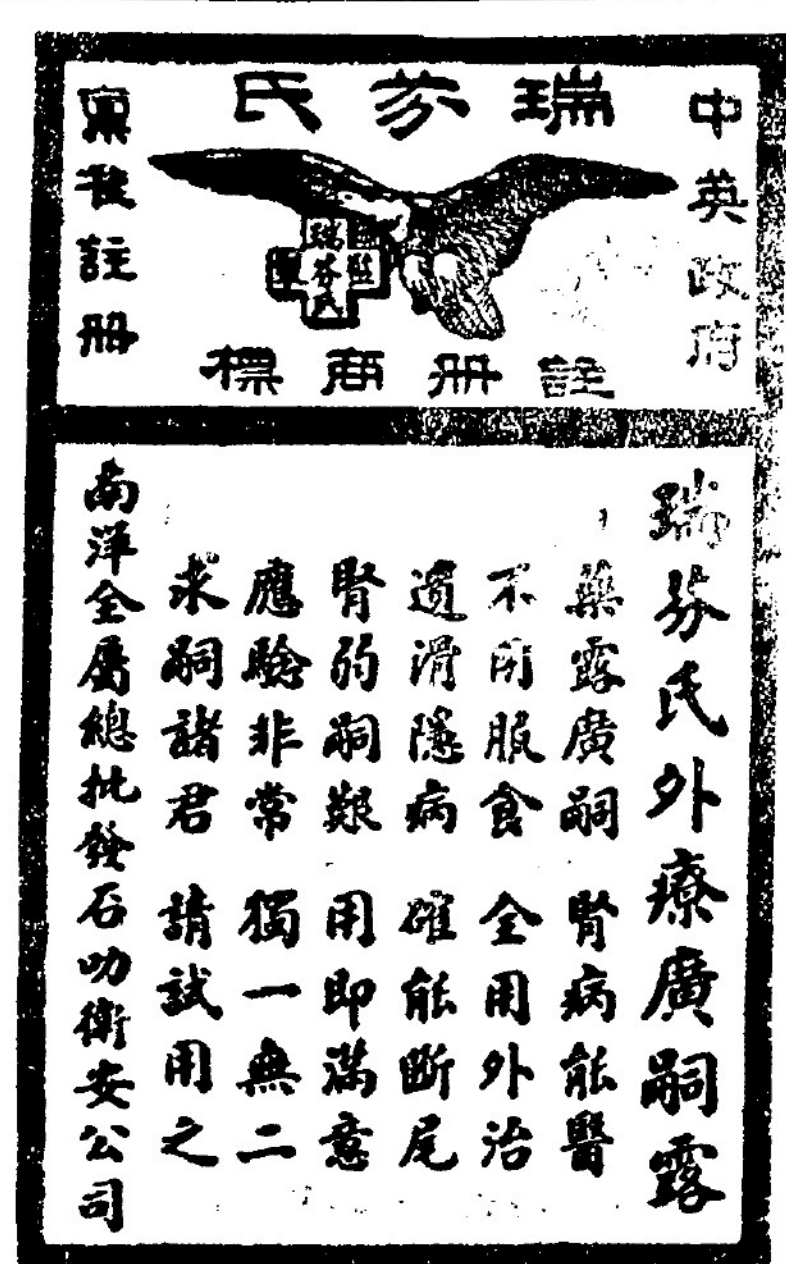 瑞芬氏
中英政府
稟准註冊
瑞芬氏
註冊商標
瑞芬氏外療廣嗣露
藥露廣嗣 腎病能醫
不用服食 全用外治
遺滑隱病 確能斷尾
腎弱嗣艱 用即滿意
應驗非常 獨一無二
求嗣諸君 請試用之
南洋全屬總批發石叻衛安公司